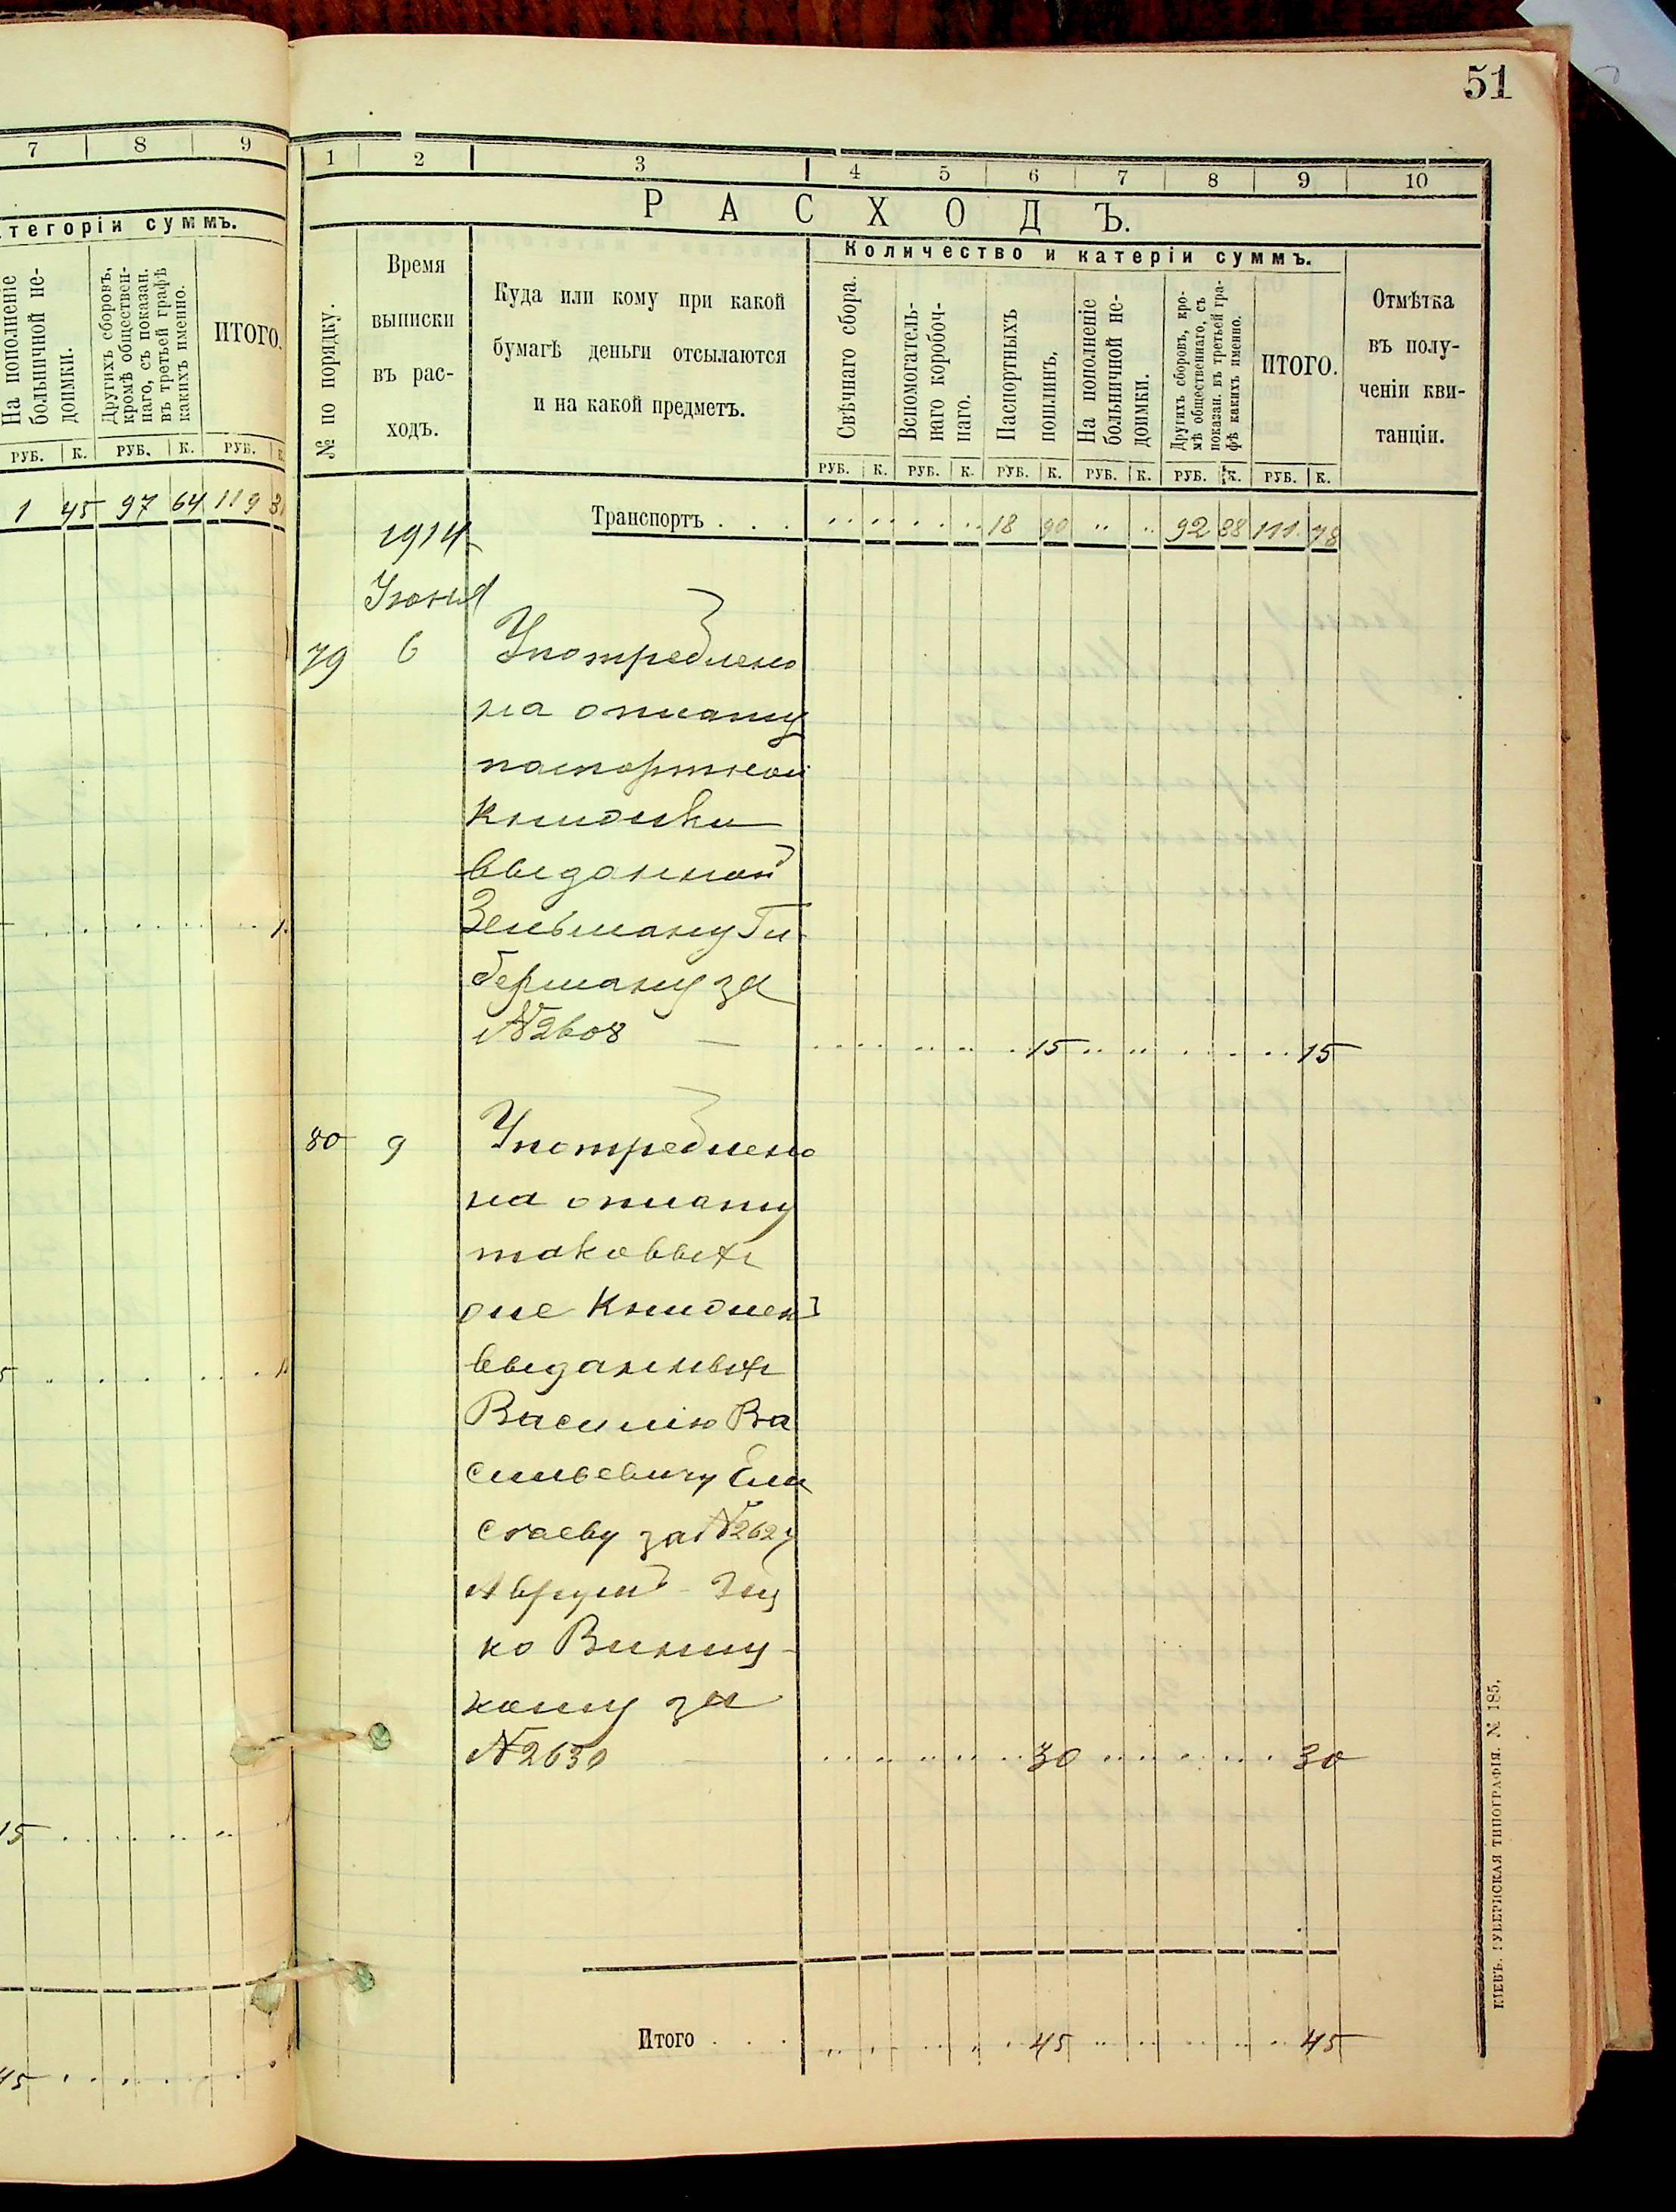 51
7 8 9
тегоріи суммъ.
На пополненіе
больничной не-
доимки.
Другихъ сборовъ,
кромѣ обществен-
наго, съ показан.
въ третьей графѣ
какихъ именно.
ИТОГО.
РУБ. К. РУБ. К. РУБ.
1 45 97 64 119
15
45
1 2 3 4 5 6 7 8 9 10
РАСХОДЪ.
№ по порядку.
Время
выписки
въ рас-
ходъ.
Куда или кому при какой
бумагѣ деньги отсылаются
и на какой предметъ.
Количество и катеріи суммъ.
Свѣчнаго сбора.
Вспомогатель-
наго коробоч-
наго.
Паспортныхъ
пошлинъ.
На пополненіе
больничной не-
доимки.
Другихъ сборовъ, кро-
мѣ общественнаго, съ
показан. въ третьей гра-
фѣ какихъ именно.
ИТОГО.
Отмѣтка
въ полу-
ченіи кви-
танціи.
РУБ. К. РУБ. К. РУБ. К. РУБ. К. РУБ. К. РУБ. К.
Транспортъ . . . 18 90 92 88 111 78
1914
Іюня
79 6 Употреблено
на оплату
паспортной
книжки
выданной
Зельману Ги
берману за
№2608 15 15
80 9 Употреблено
на оплату
таковыхъ
же книжекъ
выданныхъ
Василію Ва
сильевичу Ели
сѣеву за №2627
ко
за
№2630 30 30
Итого . . . 45 45
КІЕВЪ. ГУБЕРНСКАЯ ТИПОГРАФІЯ. № 185.